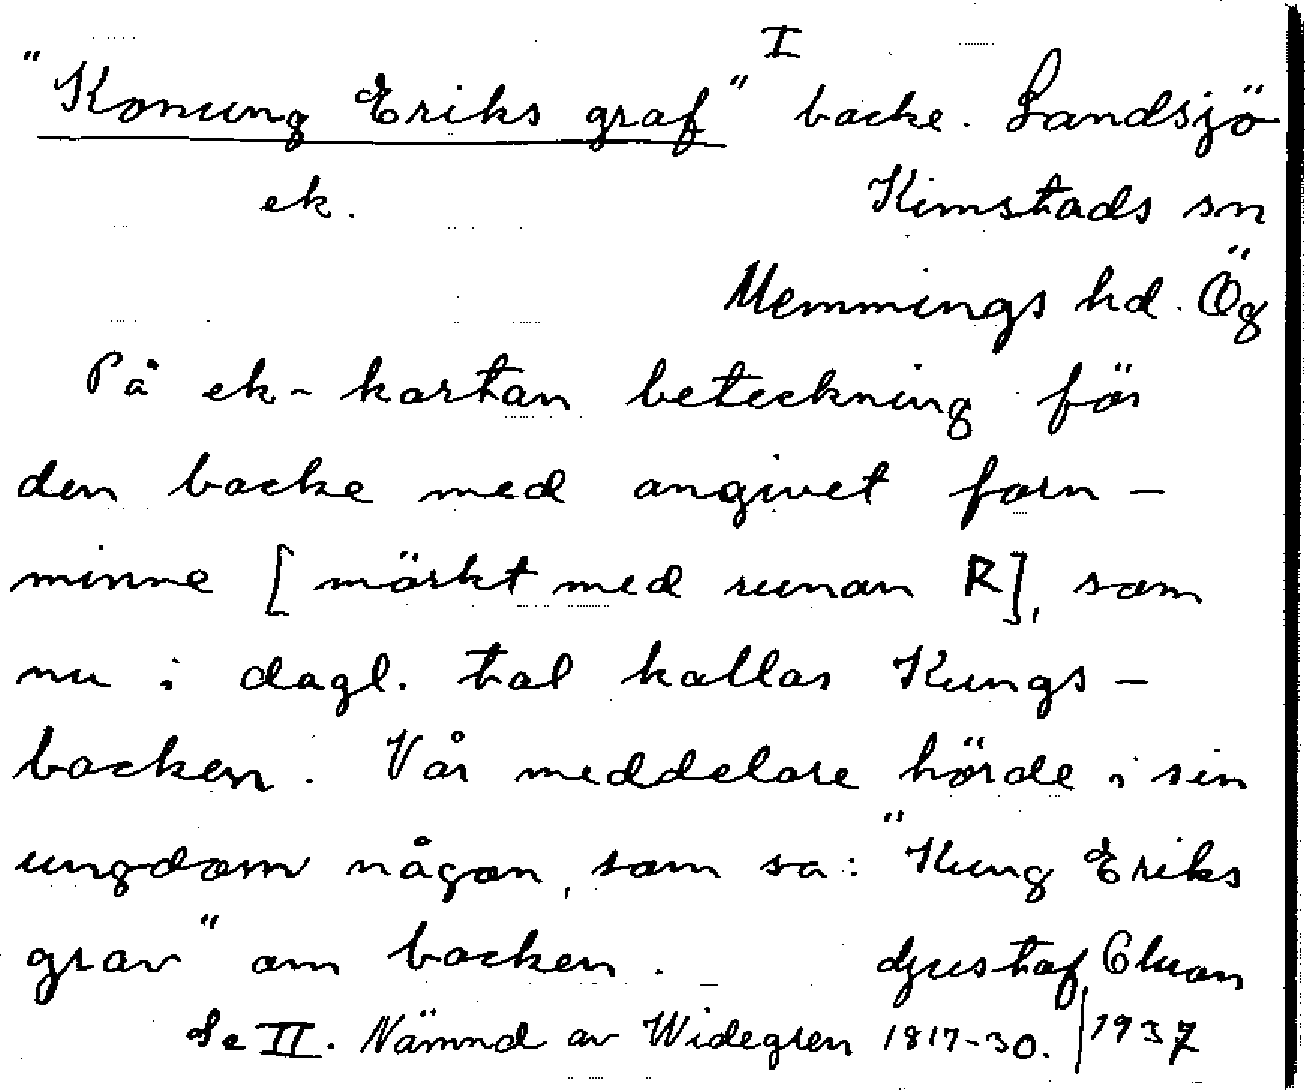 I
"Konung Eriks graf" backe. Landsjö
ek. Kimstads sn
Memmings hd. Ög
På ek-kartan beteckning för
den backe med angivet forn-
minne [märkt med runan R], som
nu i dagl. tal kallas Kungs-
backen. Vår meddelare hörde i sin
ungdom någon, som sa: "Kung Eriks
grav" om backen. Gustaf
Se II. Nämnd av Widegren 1817-30. 1937